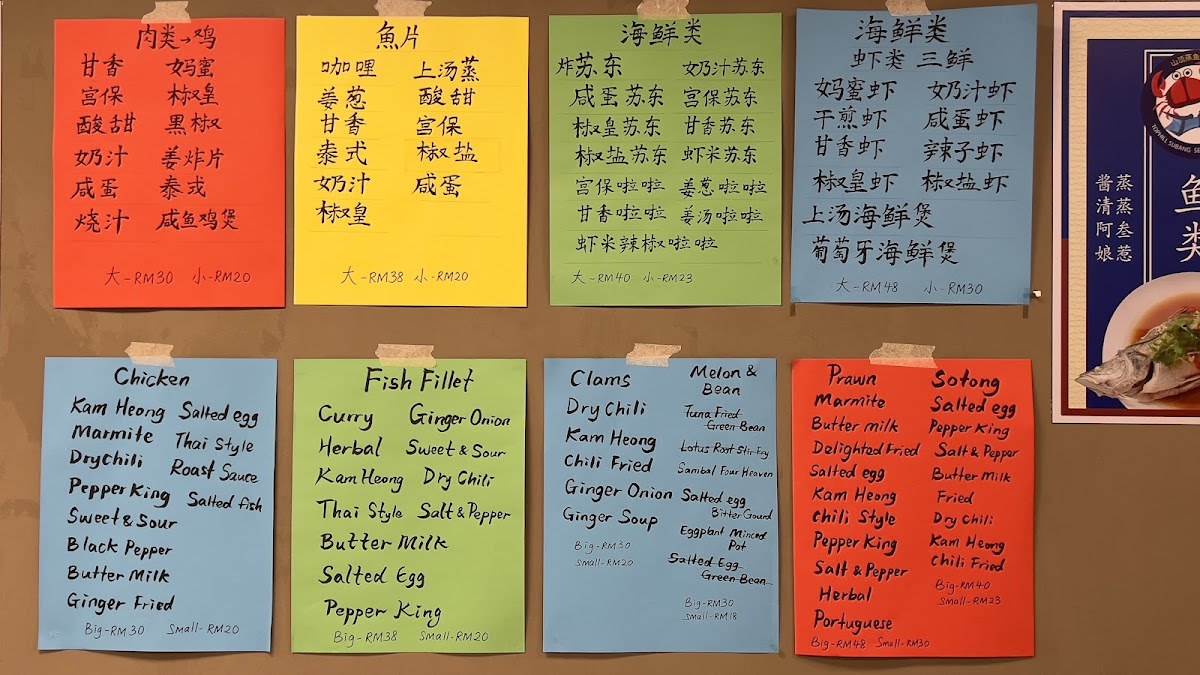 肉类→鸡
甘香 妈蜜
宫保 椒皇
酸甜 黑椒
奶汁 姜炸片
咸蛋 泰式
烧汁 咸鱼鸡煲
大-RM30 小-RM20
魚片
咖喱 上汤蒸
姜葱 酸甜
甘香 宫保
泰式 椒盐
奶汁 咸蛋
椒皇
大-RM38 小-RM20
海鲜类
炸苏东 奶汁苏东
咸蛋苏东 宫保苏东
椒皇苏东 甘香苏东
椒盐苏东 虾米苏东
宫保啦啦 姜葱啦啦
甘香啦啦 姜汤啦啦
虾米辣椒啦啦
大-RM40 小-RM23
海鲜类
虾类 三鲜
妈蜜虾 奶汁虾
干煎虾 咸蛋虾
甘香虾 辣子虾
椒皇虾 椒盐虾
上汤海鲜煲
葡萄牙海鲜煲
大-RM48 小-RM30
Chicken
Kam Heong Salted egg
Marmite Thai Style
Dry Chili Roast Sauce
Pepper King Salted fish
Sweet & Sour
Black Pepper
Butter Milk
Ginger Fried
Big-RM30 Small-RM20
Fish Fillet
Curry Ginger Onion
Herbal Sweet & Sour
Kam Heong Dry Chili
Thai Style Salt & Pepper
Butter Milk
Salted Egg
Pepper King
Big-RM38 Small-RM20
Clams
Dry Chili
Kam Heong
Chili Fried
Ginger Onion
Ginger Soup
Big-RM30
Small-RM20
Melon &
Bean
Tuna Fried
Green Bean
Lotus Root Stir-Fry
Sambal Four Heaven
Salted egg
Bitter Gourd
Eggplant Minced
Pot
Salted Egg
Green Bean
Big-RM30
Small-RM18
Prawn
Marmite
Butter milk
Delighted Fried
Salted egg
Kam Heong
Chili Style
Pepper King
Salt & Pepper
Herbal
Portuguese
Big-RM48 Small-RM30
Sotong
Salted egg
Pepper King
Salt & Pepper
Butter Milk
Fried
Dry Chili
Kam Heong
Chili Fried
Big-RM40
Small-RM23
山顶蒸鱼
TOPHILL SUBANG SE
鱼类
蒸蒸叁惹
酱清阿娘